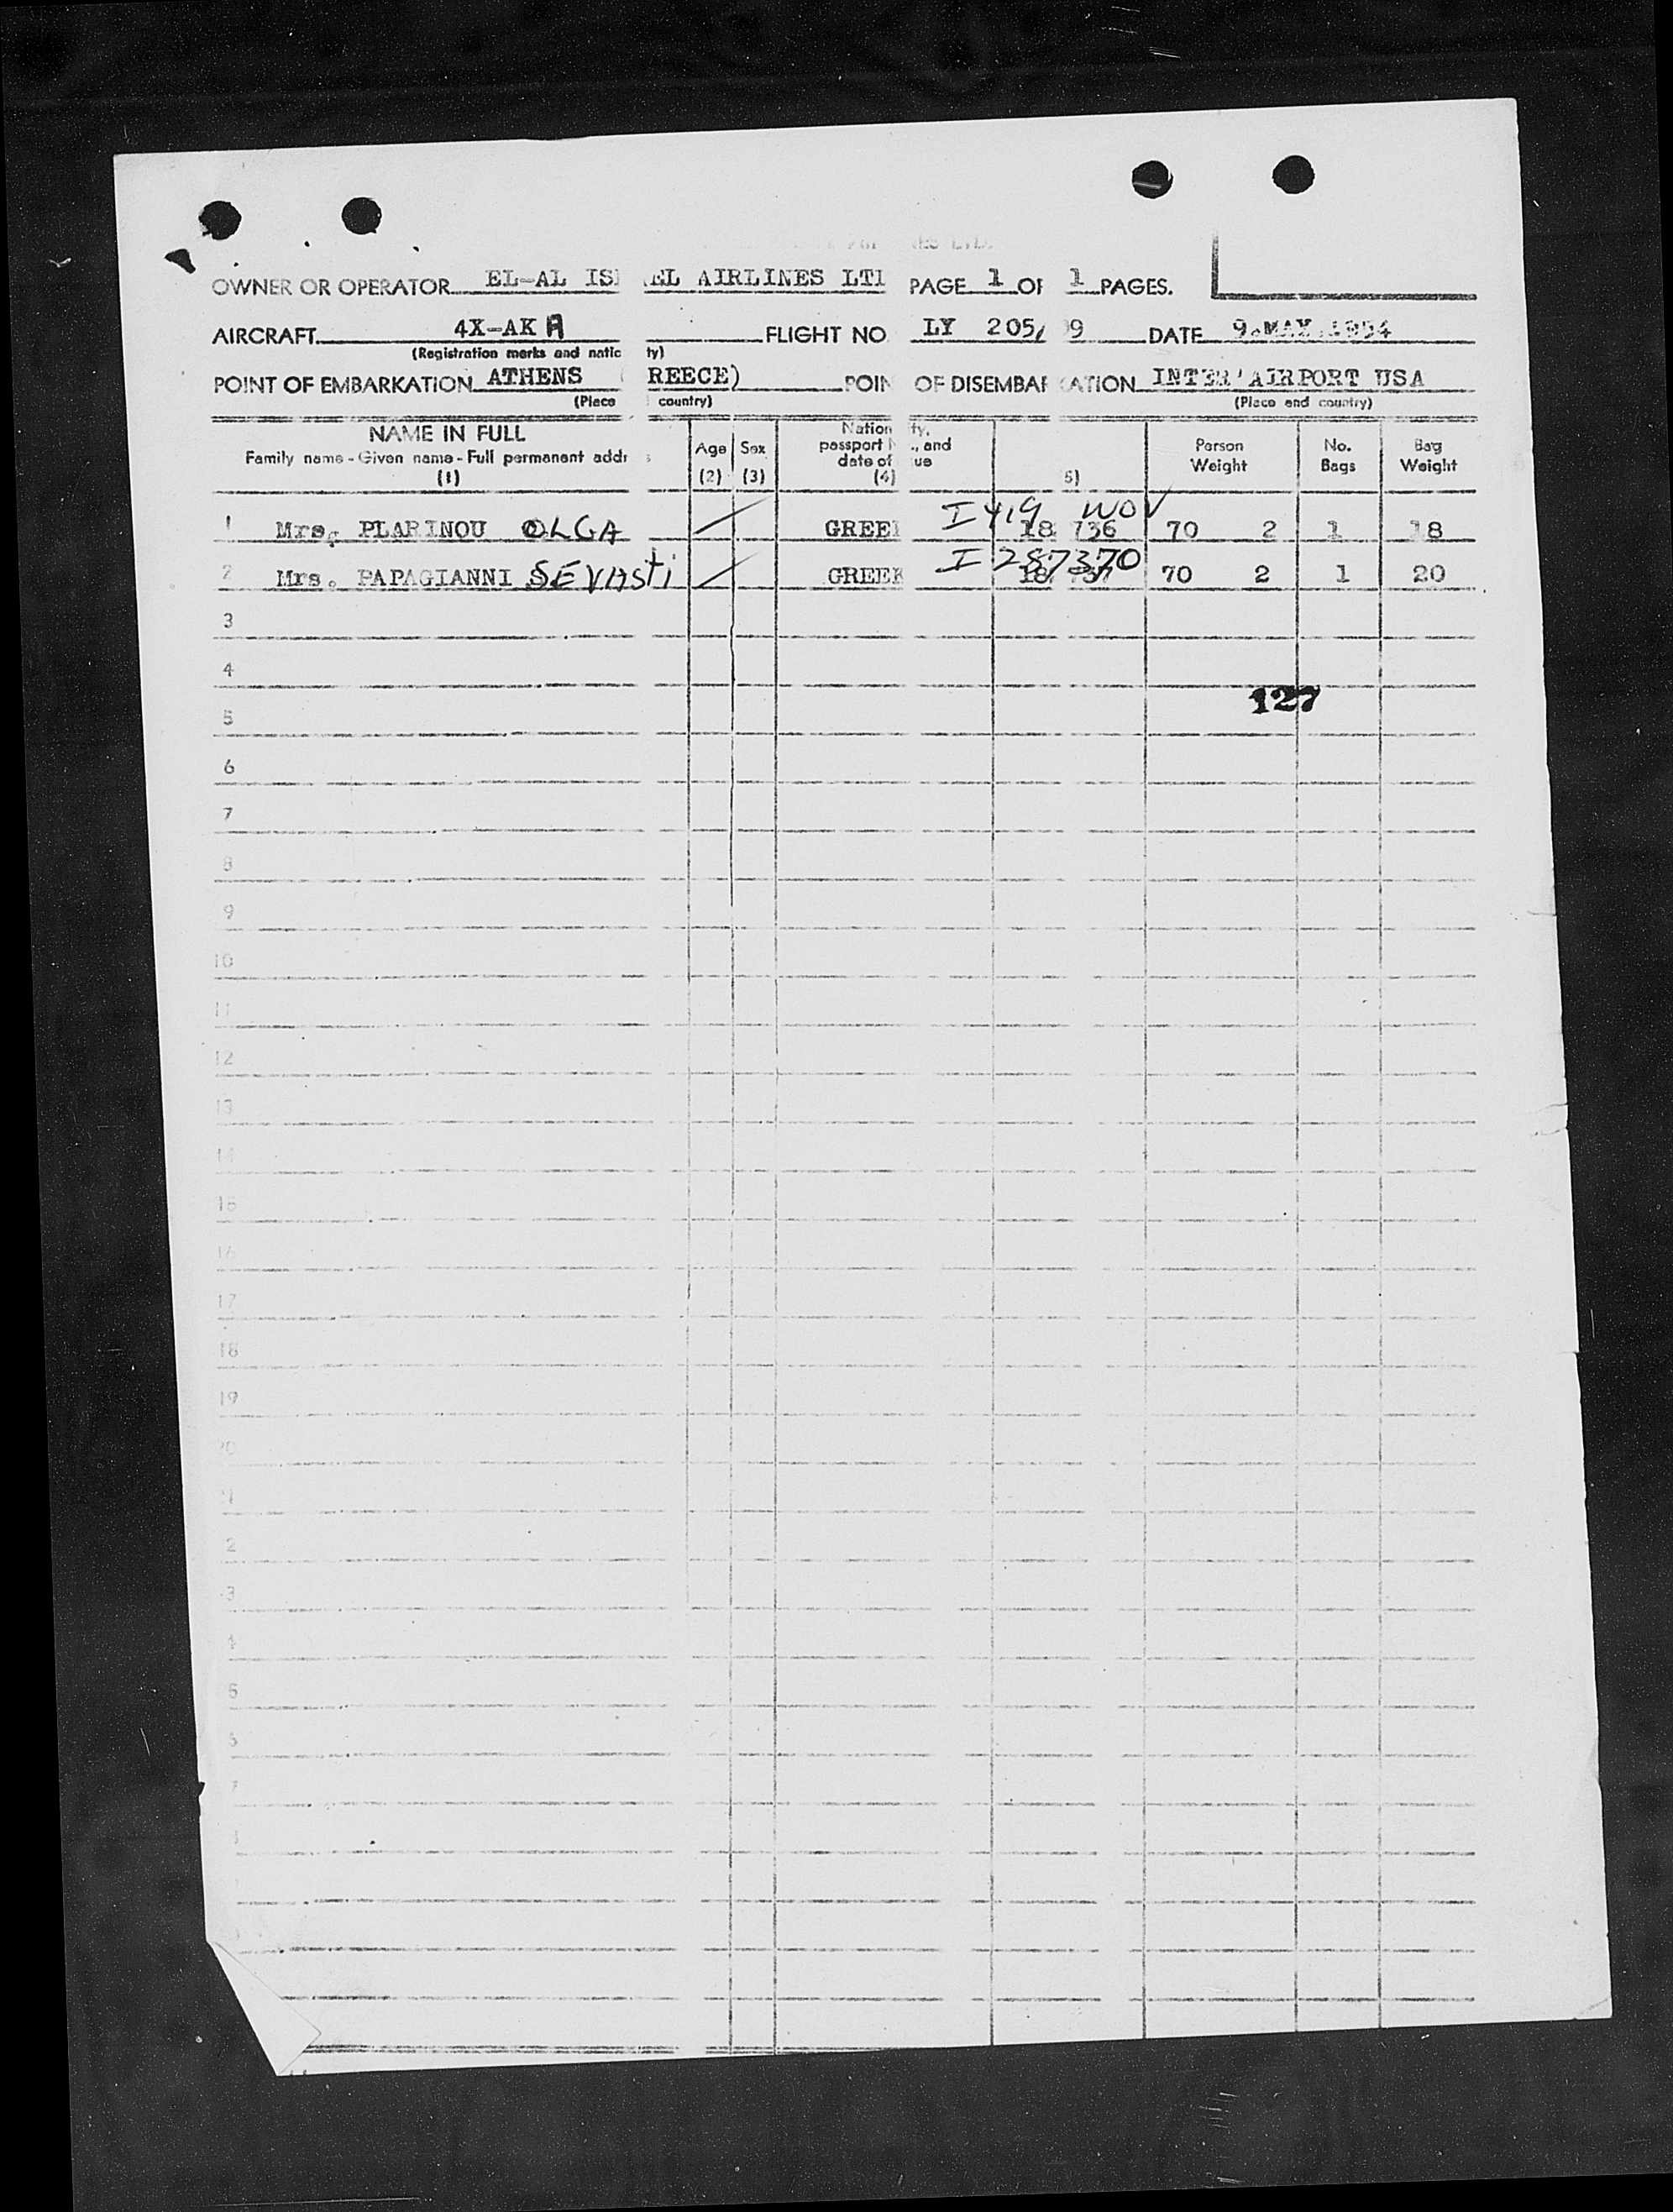 OWNER OR OPERATOR EL-AL IS EL AIRLINES LT PAGE 1 OF 1 PAGES.
AIRCRAFT 4X-AKA FLIGHT NO LY 205/ 9 DATE 9.MAY.1954
(Registration marks and natio ty)
POINT OF EMBARKATION ATHENS REECE) POIN OF DISEMBAR ATION INTER'AIRPORT USA
(Place country) (Place and country)
NAME IN FULL
Family name - Given name - Full permanent addr s
(1)
Age
(2)
Sex
(3)
Nation ty,
passport N ., and
date of ue
(4)
5)
Person
Weight
No.
Bags
Bag
Weight
1 Mrs. PLARINOU OLGA GREE 18 736 70 2 1 18
I 419 WOV
2 Mrs. PAPAGIANNI SEVASti GREEK 18 737 70 2 1 20
I 287370
3
4
127
5
6
7
8
9
10
11
12
13
14
15
16
17
18
19
2
3
5